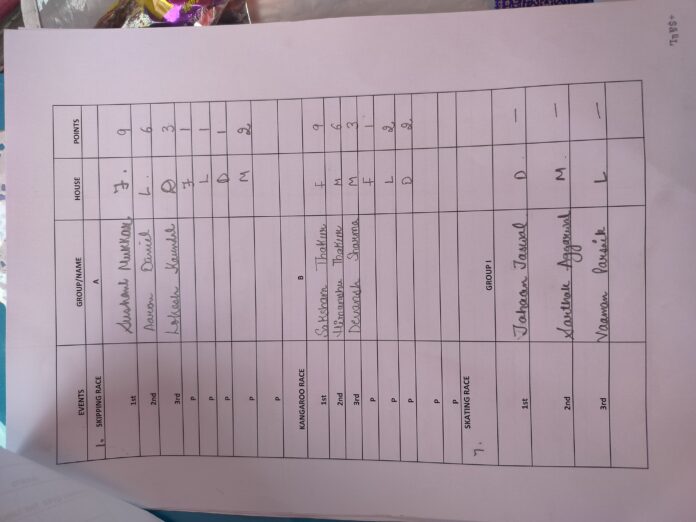 EVENTS GROUP/NAME HOUSE POINTS
1. SKIPPING RACE A
1st Sushant F. 9
2nd Aaron Daniel L. 6
3rd Lokesh D 3
P F 1
P L 1
P D 1
P M 2
P
KANGAROO RACE B
1st Saksham Thakur F 9
2nd Himanshu Thakur M 6
3rd Devansh Sharma M 3
P F 1
P L 2
P D 2
P
P
7. SKATING RACE GROUP I
1st Jahaan Jaswal D —
2nd Sarthak Aggarwal M. —
3rd Vaaman L —